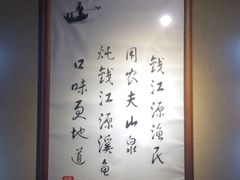 钱江源渔民
用农夫山泉
炖钱江源溪鱼
口味更地道